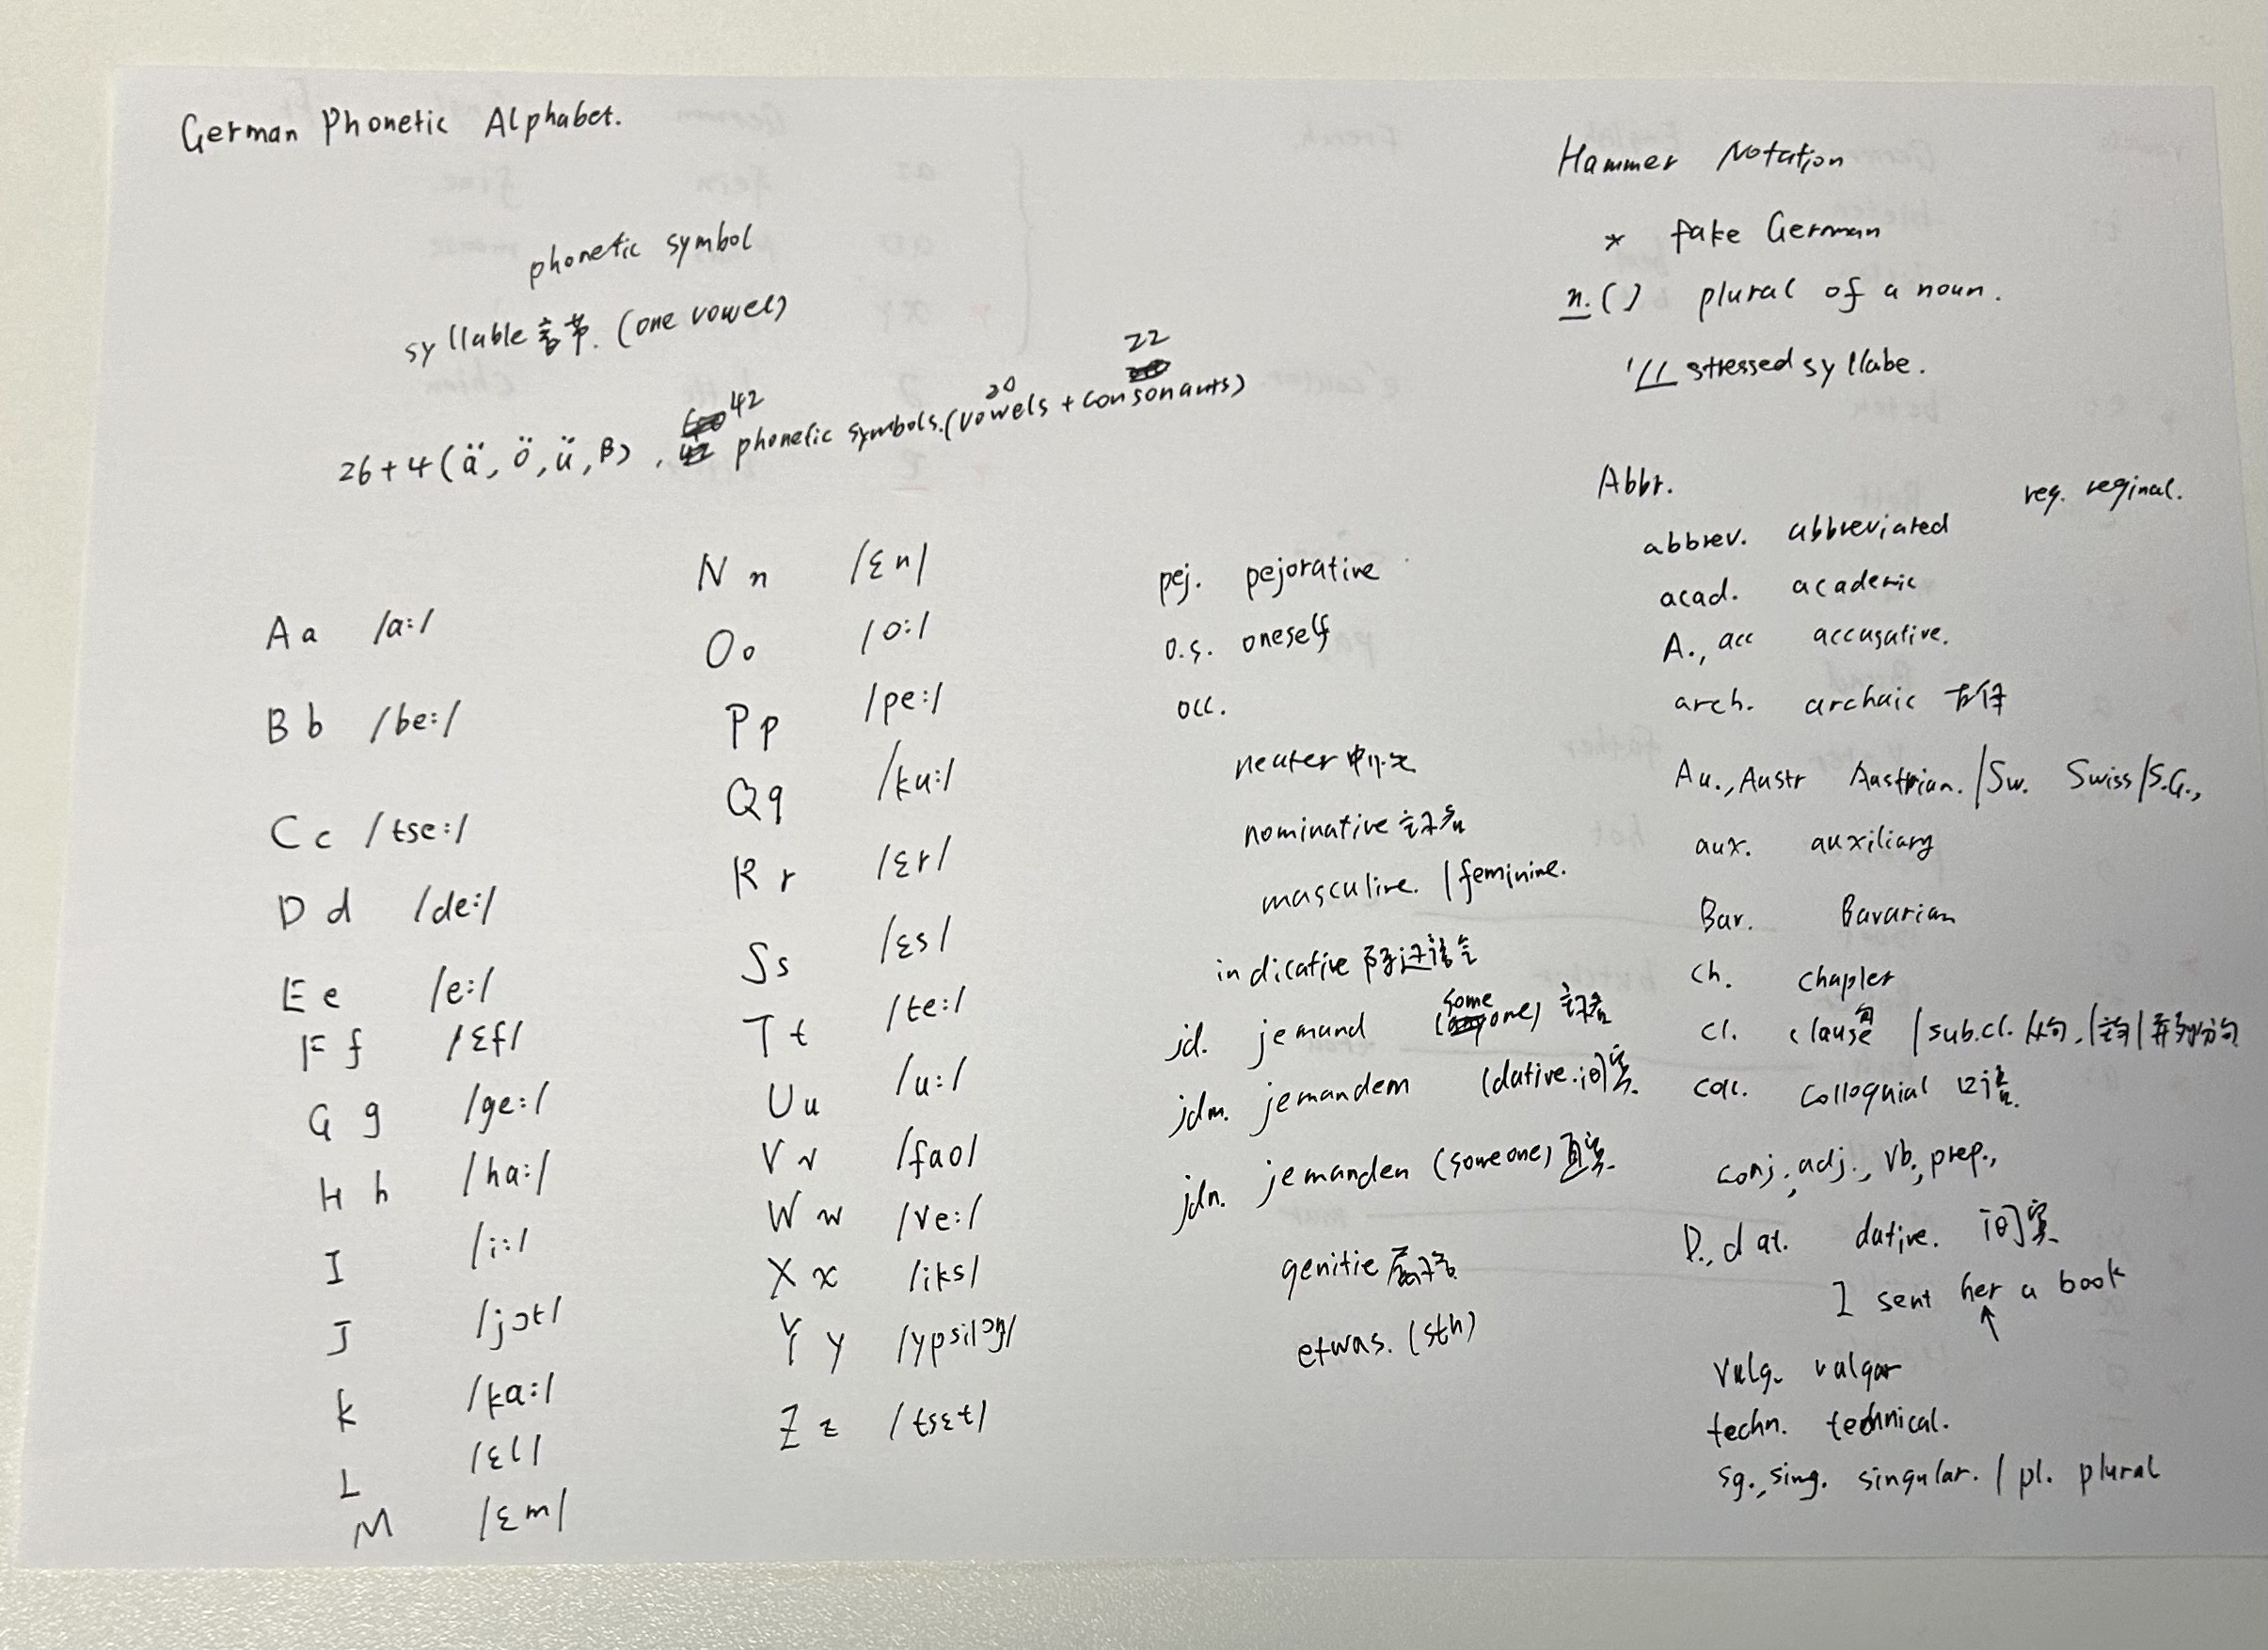 German Phonetic Alphabet.
phonetic symbol
syllable 音节. (one vowel)
26+4 (ä, ö, ü, β), 42 phonetic symbols. (20 vowels + 22 consonants)
A a /a:/
B b /be:/
C c /tse:/
D d /de:/
E e /e:/
F f /εf/
G g /ge:/
H h /ha:/
I /i:/
J /jɔt/
K /ka:/
L /εl/
M /εm/
N n /εn/
O o /o:/
P p /pe:/
Q q /ku:/
R r /εr/
S s /εs/
T t /te:/
U u /u:/
V v /fao/
W w /ve:/
X x /iks/
Y y /ypsilɔn/
Z z /tsεt/
pej. pejorative
o.s. oneself
occ.
neuter 中性
nominative 主格
masculine. / feminine.
indicative 陈述语气
jd. jemand (someone)
jdm. jemandem (dative. 间宾
jdn. jemanden (someone) 直宾
genitie
etwas. (sth)
Hammer Notation
* fake German
n. ( ) plural of a noun.
'/_/_ stressed syllabe.
Abbr.
reg. reginal.
abbrev. abbreviated
acad. academic
A., acc accusative.
arch. archaic
Au., Austr Austrian. / Sw. Swiss / S.G.,
aux. auxiliary
Bav. Bavarian
ch. chapter
cl. clause 句 / sub.cl. 从句. / 主句 / 并列分句
coll. colloquial 口语
conj., adj., vb., prep.,
D., dat. dative. 间宾
I sent her a book
↑
vulg. vulgar
techn. technical.
sg., sing. singular. / pl. plural